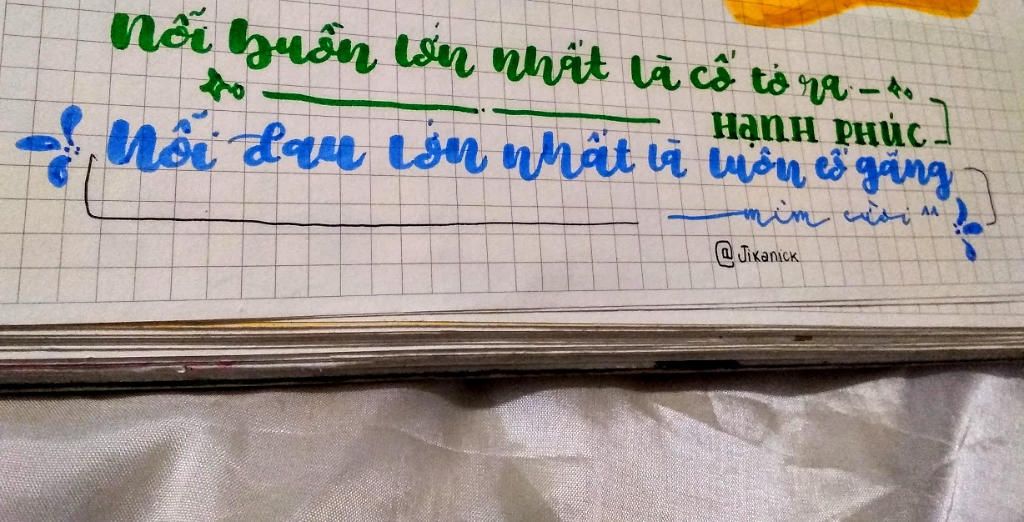 Nỗi buồn lớn nhất là cố tỏ ra -
HẠNH PHÚC
Nỗi đau lớn nhất là luôn cố gắng
mỉm cười ^^
@Jikanick